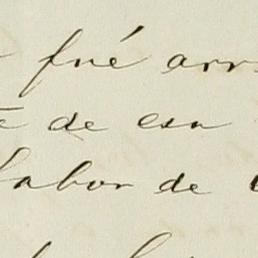 fué arr
de esa
labor de